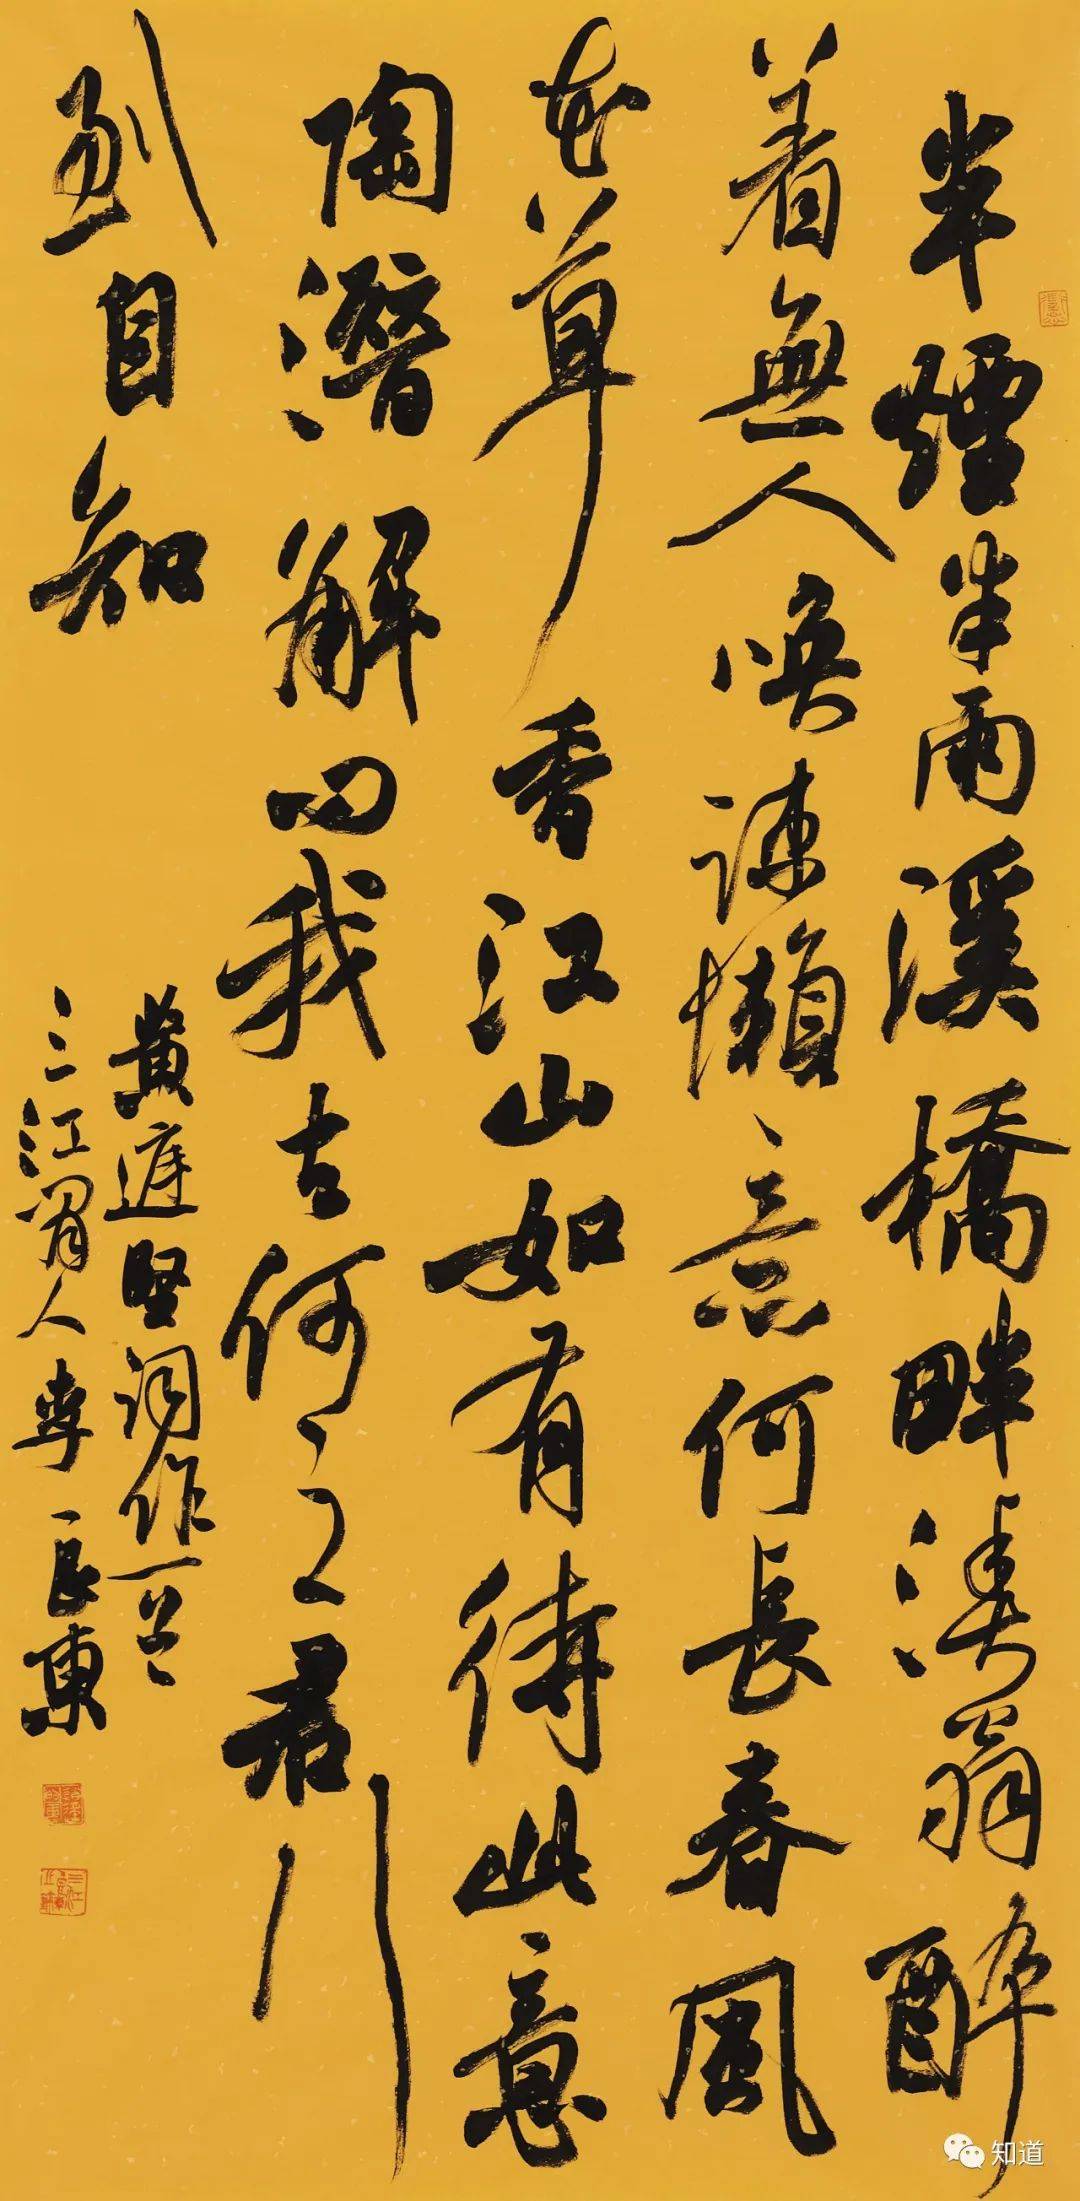 半煙半雨溪橋畔漁翁醉
着無人喚疎懶意何長春風
花草香江山如有待此意
陶潛解問我去何之君行
到自知
黃庭堅詞作一首
三江閒人李良東
知道